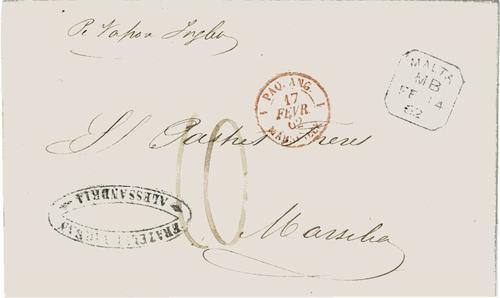 Pr Vapor Inglese
PAQ. ANG.
17
FEVR
62
MALTA
MB
FE 14
62
Pastré Frères
10
Marsilia
FRATELLI
ALESSANDRIA